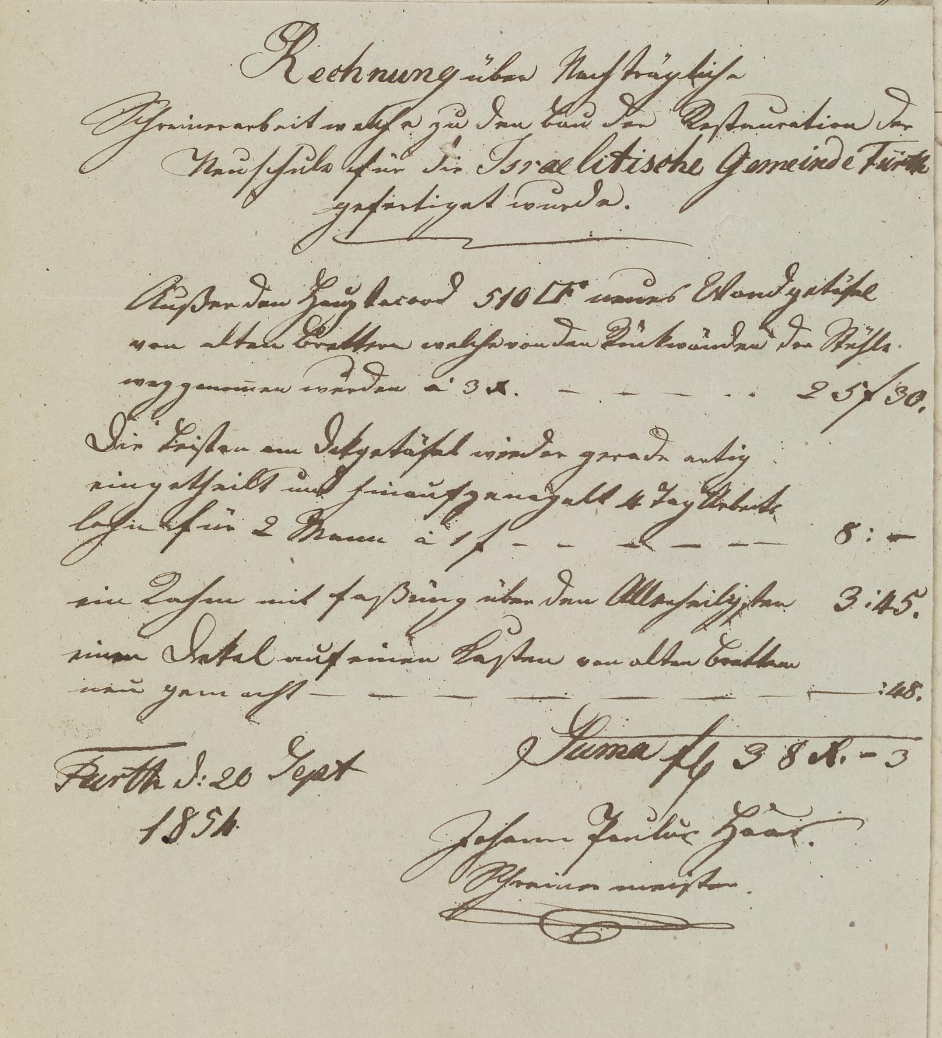 Rechnung über Nachträgliche
Schreinerarbeit welche zu den bau der Restauration der
Neuschule für die Israelitische Gemeinde Fürth
gefertiget wurde.
Außer den Hauptaccord 510 □F neues Wandgetäfel
von alten Brettern welche von den Rückwänden der Stühle
weggenommen wurden à 3 x. — — — — 25f 30.
Die Leisten am Dekgetäfel wieder gerade artig
eingetheilt und hinaufgenagelt 4 Tag Arbeits
lohn für 2 Mann à 1 f — — — — — 8 : —
ein Rahm mit faßung über den Allerheiligsten 3 : 45.
einen Dekel auf einen Kasten von alten Brettern
neu gemacht — — — — — — — : 48.
Suma fl 38 x. – 3
Fürth d: 20 Sept
1854.
Johann Paulus Haas.
Schreinermeister.